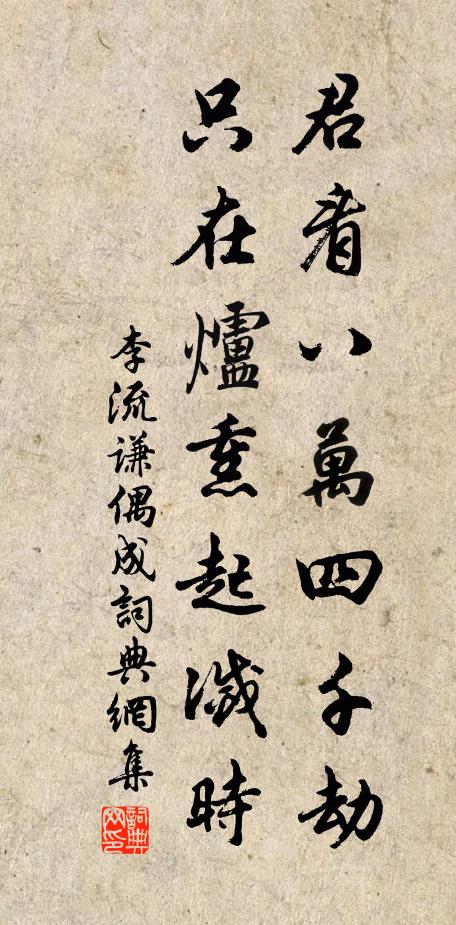 君看八萬四千劫
只在爐熏起滅時
李流謙偶成詞典網集
詞典网印